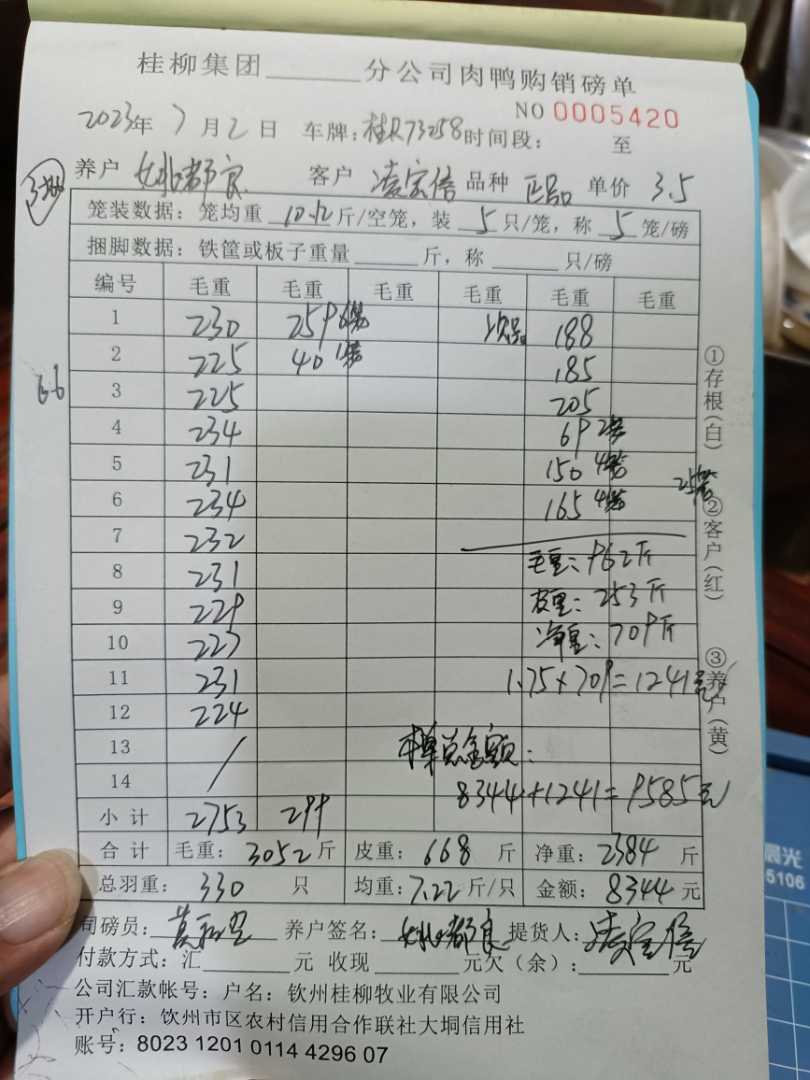 桂柳集团______分公司肉鸭购销磅单
NO 0005420
2023年 7月2日 车牌：桂R73258时间段： 至
养户 姚都良 客户 凌宝信 品种 正品 单价 3.5
笼装数据：笼均重 10.12 斤/空笼，装 5 只/笼，称 5 笼/磅
捆脚数据：铁筐或板子重量______斤，称______只/磅
编号 毛重 毛重 毛重 毛重 毛重 毛重
1 230 259 6笼 次品 188
2 225 40 1笼 185
3 225 205
4 234 69 2笼
5 231 150 4笼
6 234 165 4笼 25笼
7 232
8 231 毛重：962斤
9 229 皮重：253斤
10 227 净重：709斤
11 231 1.75×709=1241元
12 224
13 / 本单总金额：
14 8344+1241=9585元
小计 2753 299
合计 毛重：3052斤 皮重：668 斤 净重：2384 斤
总羽重：330 只 均重：7.22斤/只 金额：8344元
66
①存根（白）
②客户（红）
③养户（黄）
司磅员： 养户签名：姚都良 提货人：凌宝信
付款方式：汇______元 收现______元欠（余）：______元
公司汇款帐号：户名：钦州桂柳牧业有限公司
开户行：钦州市区农村信用合作联社大垌信用社
账号：8023 1201 0114 4296 07
晨光
5106